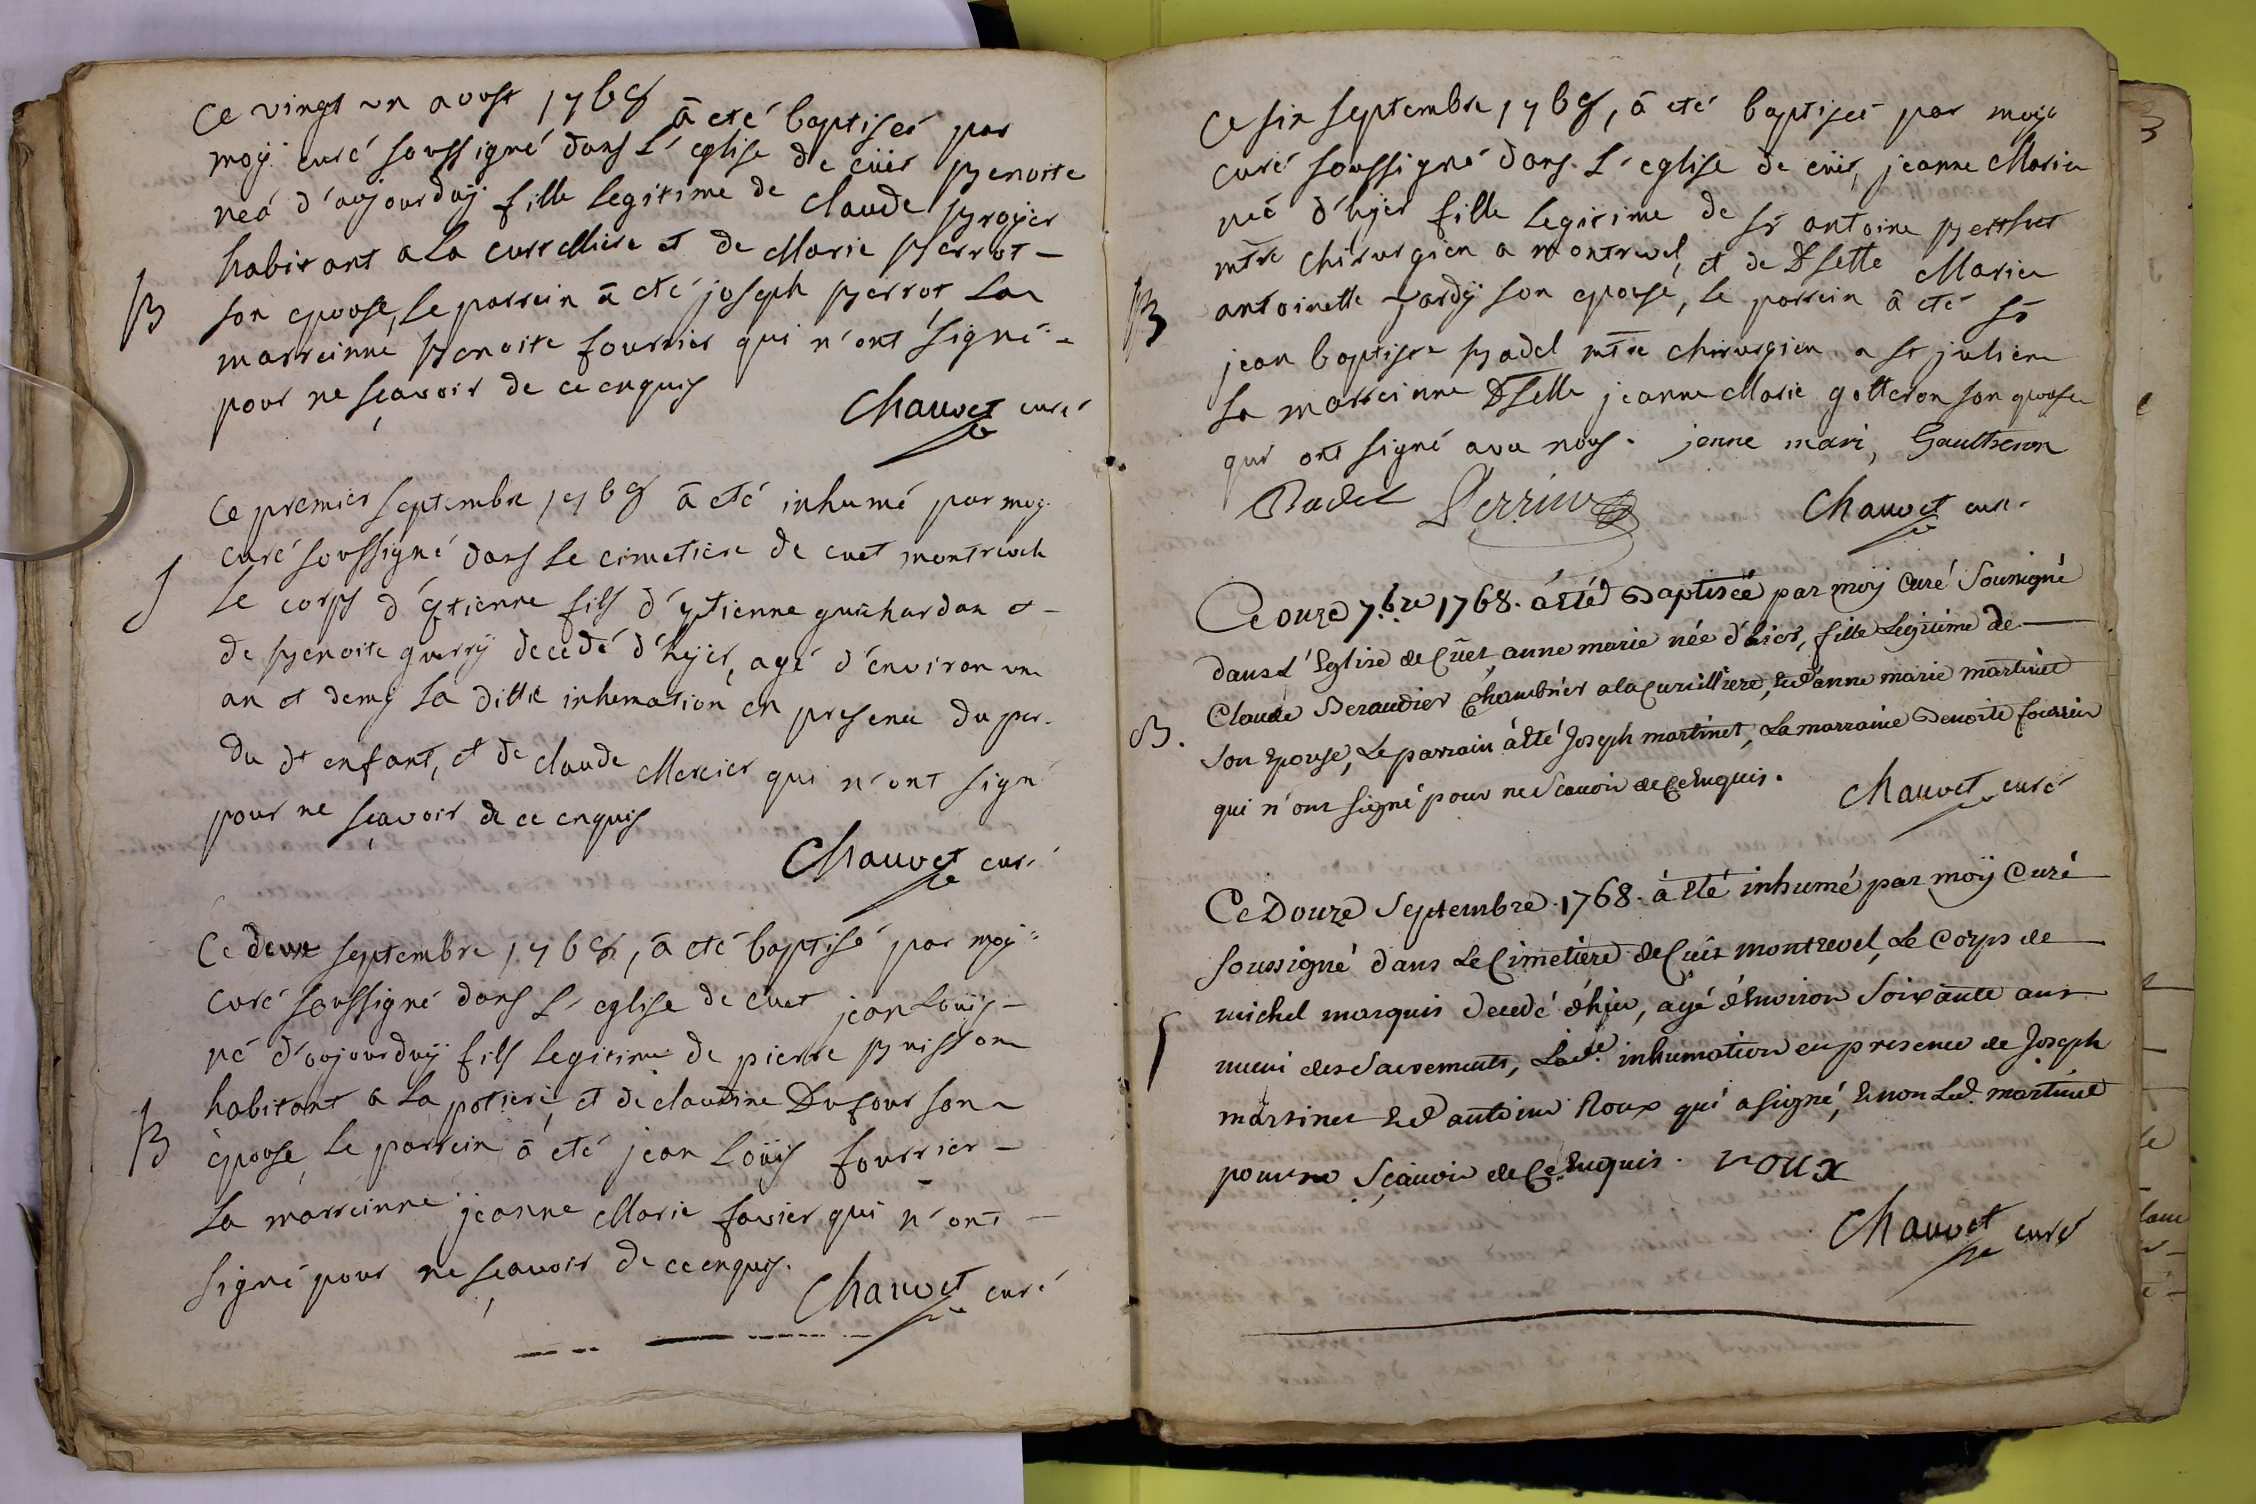 Ce vingt un aoust 1768 à eté baptiseé par
moÿ curé soussigné dans L'eglise de cüet Benoite
neé d'aujourduÿ fille legitime de claude Broÿer
habitant a La curtelliere et de Marie Perrot
B
son epouse, Le parrein à eté joseph Perrot, La
marreinne Benoite fourrier qui n'ont signé
pour ne sçavoir de ce enquis
Chauvet curé
Ce premier septembre 1768 à eté inhumé par moy
curé soussigné dans Le cimetiere de cuet montrevel
S
Le corps d'Etienne fils d'Etienne guichardan et
de Benoite guerrÿ decedé d'hÿer, agé d'environ un
an et demy La ditte inhumation en presence du per
du dt enfant, et de claude Mercier qui n'ont signé
pour ne sçavoir de ce enquis
Chauvet curé
Ce deux septembre 1768, à eté baptisé par moÿ
curé soussigné dans L'eglise de cuet jean Louis
né d'aujourduÿ fils legitime de pierre Buisson
habitant a La potiere et de claudine Dufour son
B
épouse, Le parrein à eté jean Loüis fourrier
La marreinne jeanne Marie favier qui n'ont
signé pour ne sçavoir de ce enquis.
Chauvet curé
Ce six septembre 1768, à eté baptiseé par moÿ
curé soussigné dans L'eglise de cüet, jeanne Marie
neé d'hÿer fille legitime de Sr antoine
mtre chirurgien a montrevel, et de Dlle Marie
antoinette son epouse, Le parrein à eté Sr
B
jean baptiste Badel mtre chirurgien a st julien
La marreinne Dlle jeanne Marie gotteron son epouse
qui ont signé avec nous. janne mari, Gautheron
Badel Perrin
Chauvet curé
Ce onze 7bre 1768. à été Baptisée par moÿ Curé soussigné
dans L'Eglise de Cüet, anne marie née d'hier, fille Legitime de
Claude Beraudier Chambrier a la Curtilliere, et d'anne marie martinet
B.
son Epouse, Le parrain à été Joseph martinet, La marraine Benoite fourrier
qui n'ont signé pour ne Scavoir de Ce Enquis.
Chauvet curé
Ce Douze Septembre 1768. à été inhumé par moÿ Curé
soussigné dans Le Cimetiere de Cüet montrevel, Le Corps de
michel marquis decedé d'hier, agé d'Environ Soixante ans
S
muni des Sacrements, Lade. inhumation en presence de Joseph
martinet et d'antoine Roux qui a signé, et non Led. martinet
pour ne Sçavoir de Ce Enquis. roux
Chauvet curé